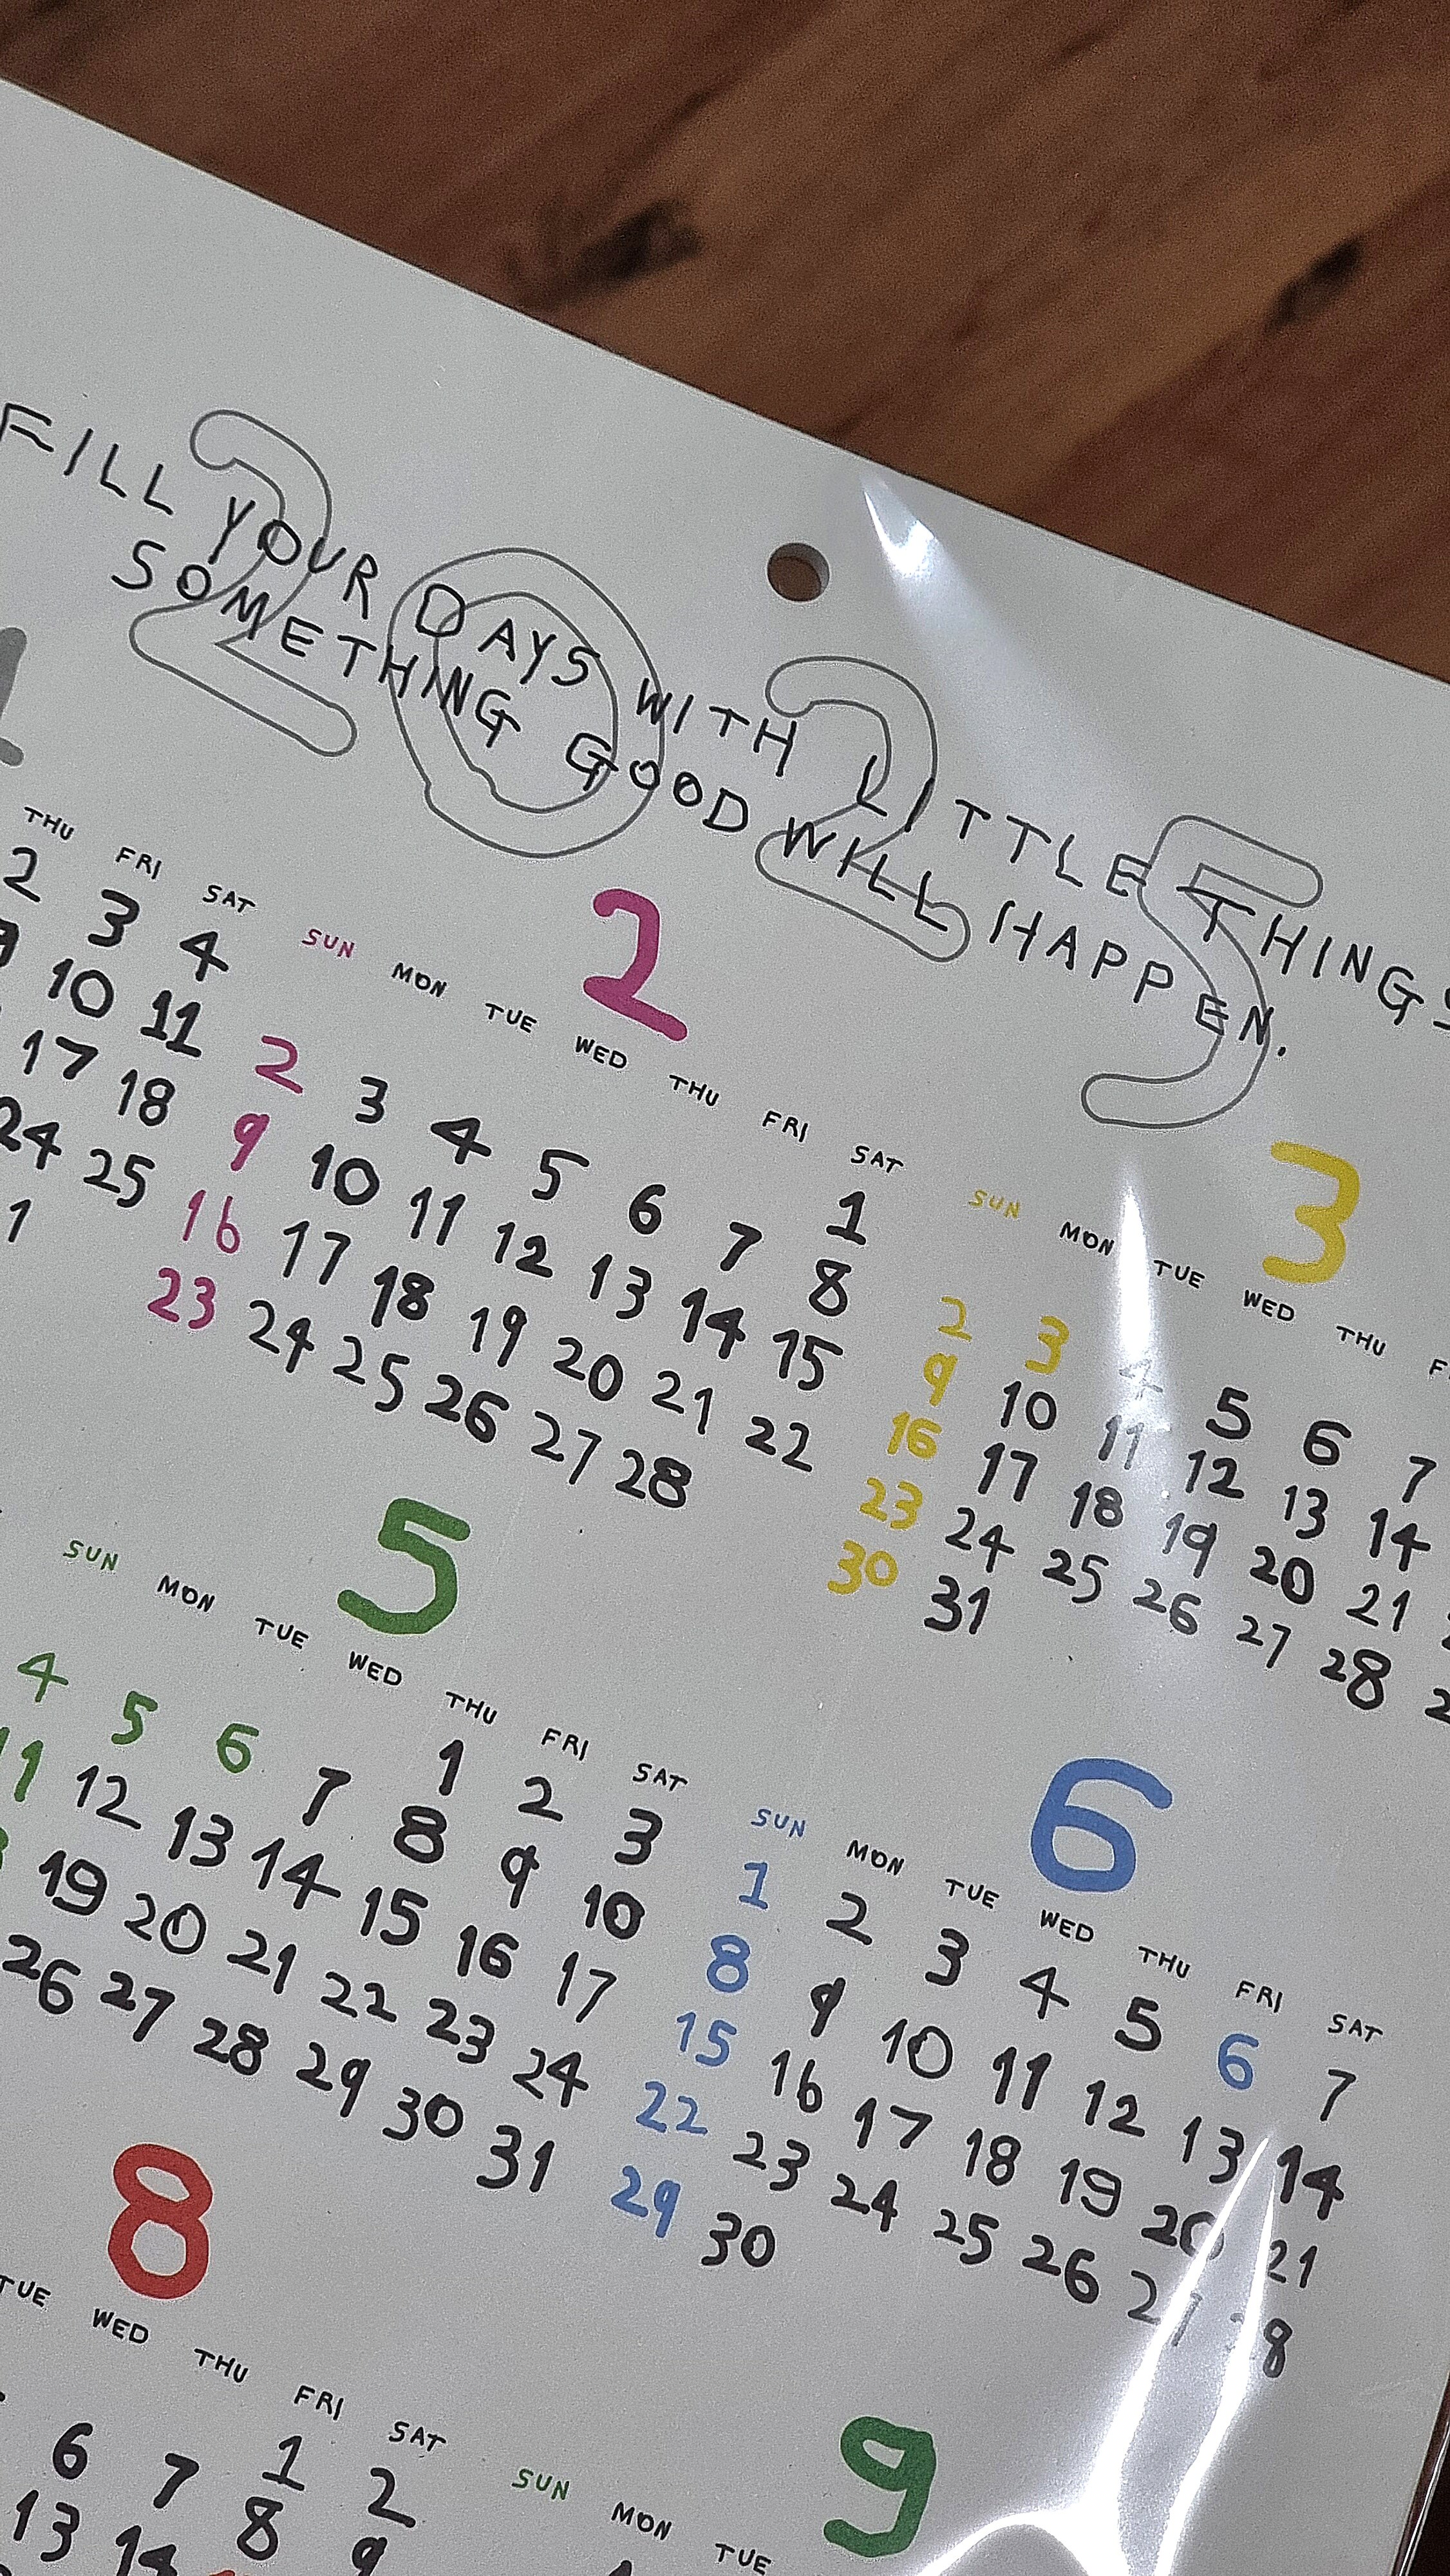 FILL YOUR DAYS WITH LITTLE THINGS
SOMETHING GOOD WILL HAPPEN.
2025
THU FRI SAT
2 3 4
9 10 11
17 18
24 25
1
2
SUN MON TUE WED THU FRI SAT
1
2 3 4 5 6 7 8
9 10 11 12 13 14 15
16 17 18 19 20 21 22
23 24 25 26 27 28
3
SUN MON TUE WED THU
2 3 4 5 6 7
9 10 11 12 13 14
16 17 18 19 20 21
23 24 25 26 27 28
30 31
5
SUN MON TUE WED THU FRI SAT
1 2 3
4 5 6 7 8 9 10
11 12 13 14 15 16 17
19 20 21 22 23 24
26 27 28 29 30 31
6
SUN MON TUE WED THU FRI SAT
1 2 3 4 5 6 7
8 9 10 11 12 13 14
15 16 17 18 19 20 21
22 23 24 25 26 27 28
29 30
8
TUE WED THU FRI SAT
1 2
6 7 8 9
13 14
9
SUN MON TUE